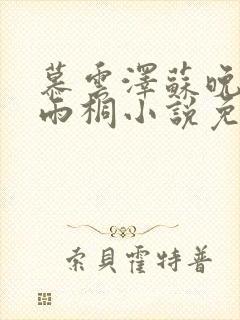 慕雲澤蘇晚
雨桐小說免
索貝霍特普